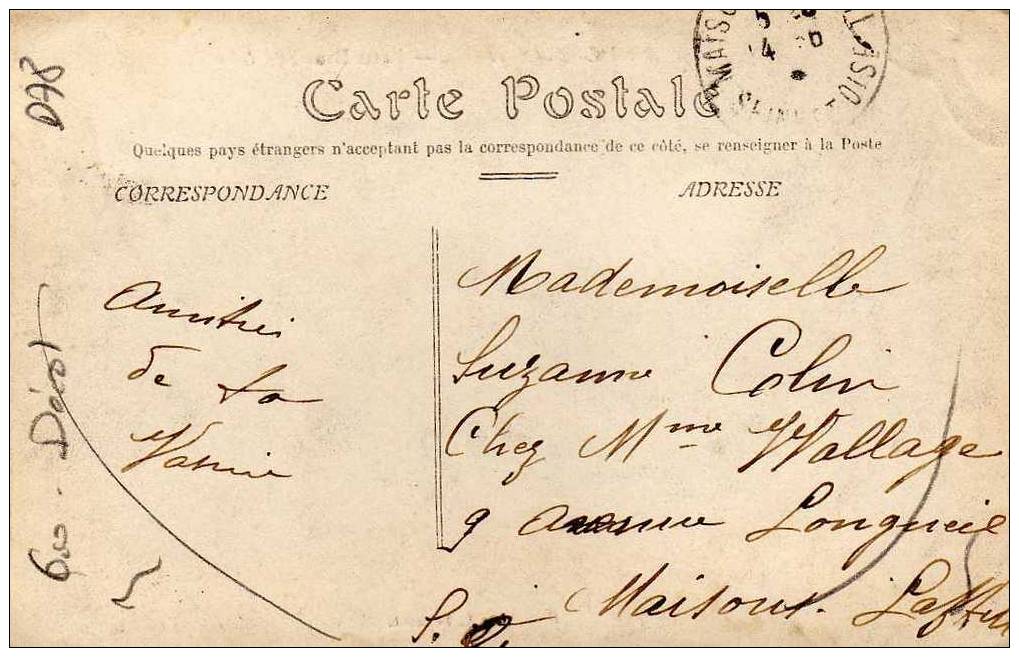 D78
Carte Postale
Quelques pays étrangers n'acceptant pas la correspondance de ce côté, se renseigner à la Poste
CORRESPONDANCE
ADRESSE
Amitiés
de ta
Mademoiselle
Suzanne Colin
Chez Mme Wallage
9 avenue Longueil
Maisons-Laffitte
S. O.